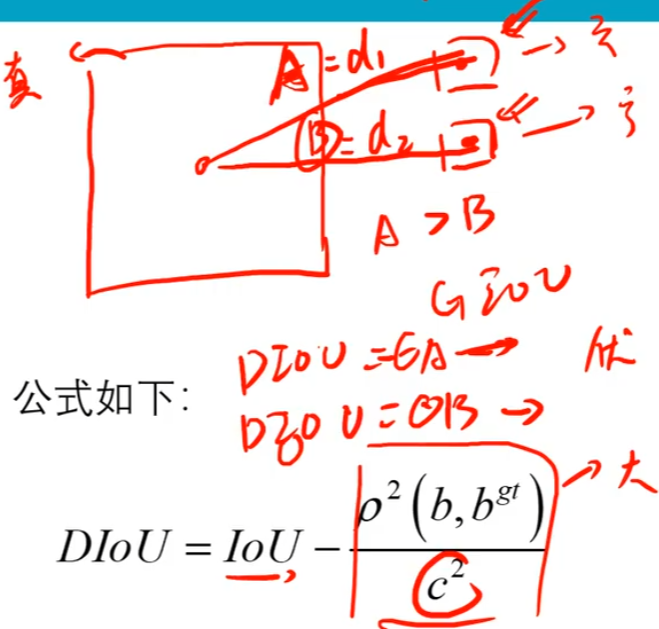 真
A = d₁
B = d₂
A > B
GIOU
DIOU = GA →
DIOU = OB →
公式如下:
大
DIoU = IoU − ρ²(b, b^gt) / c²